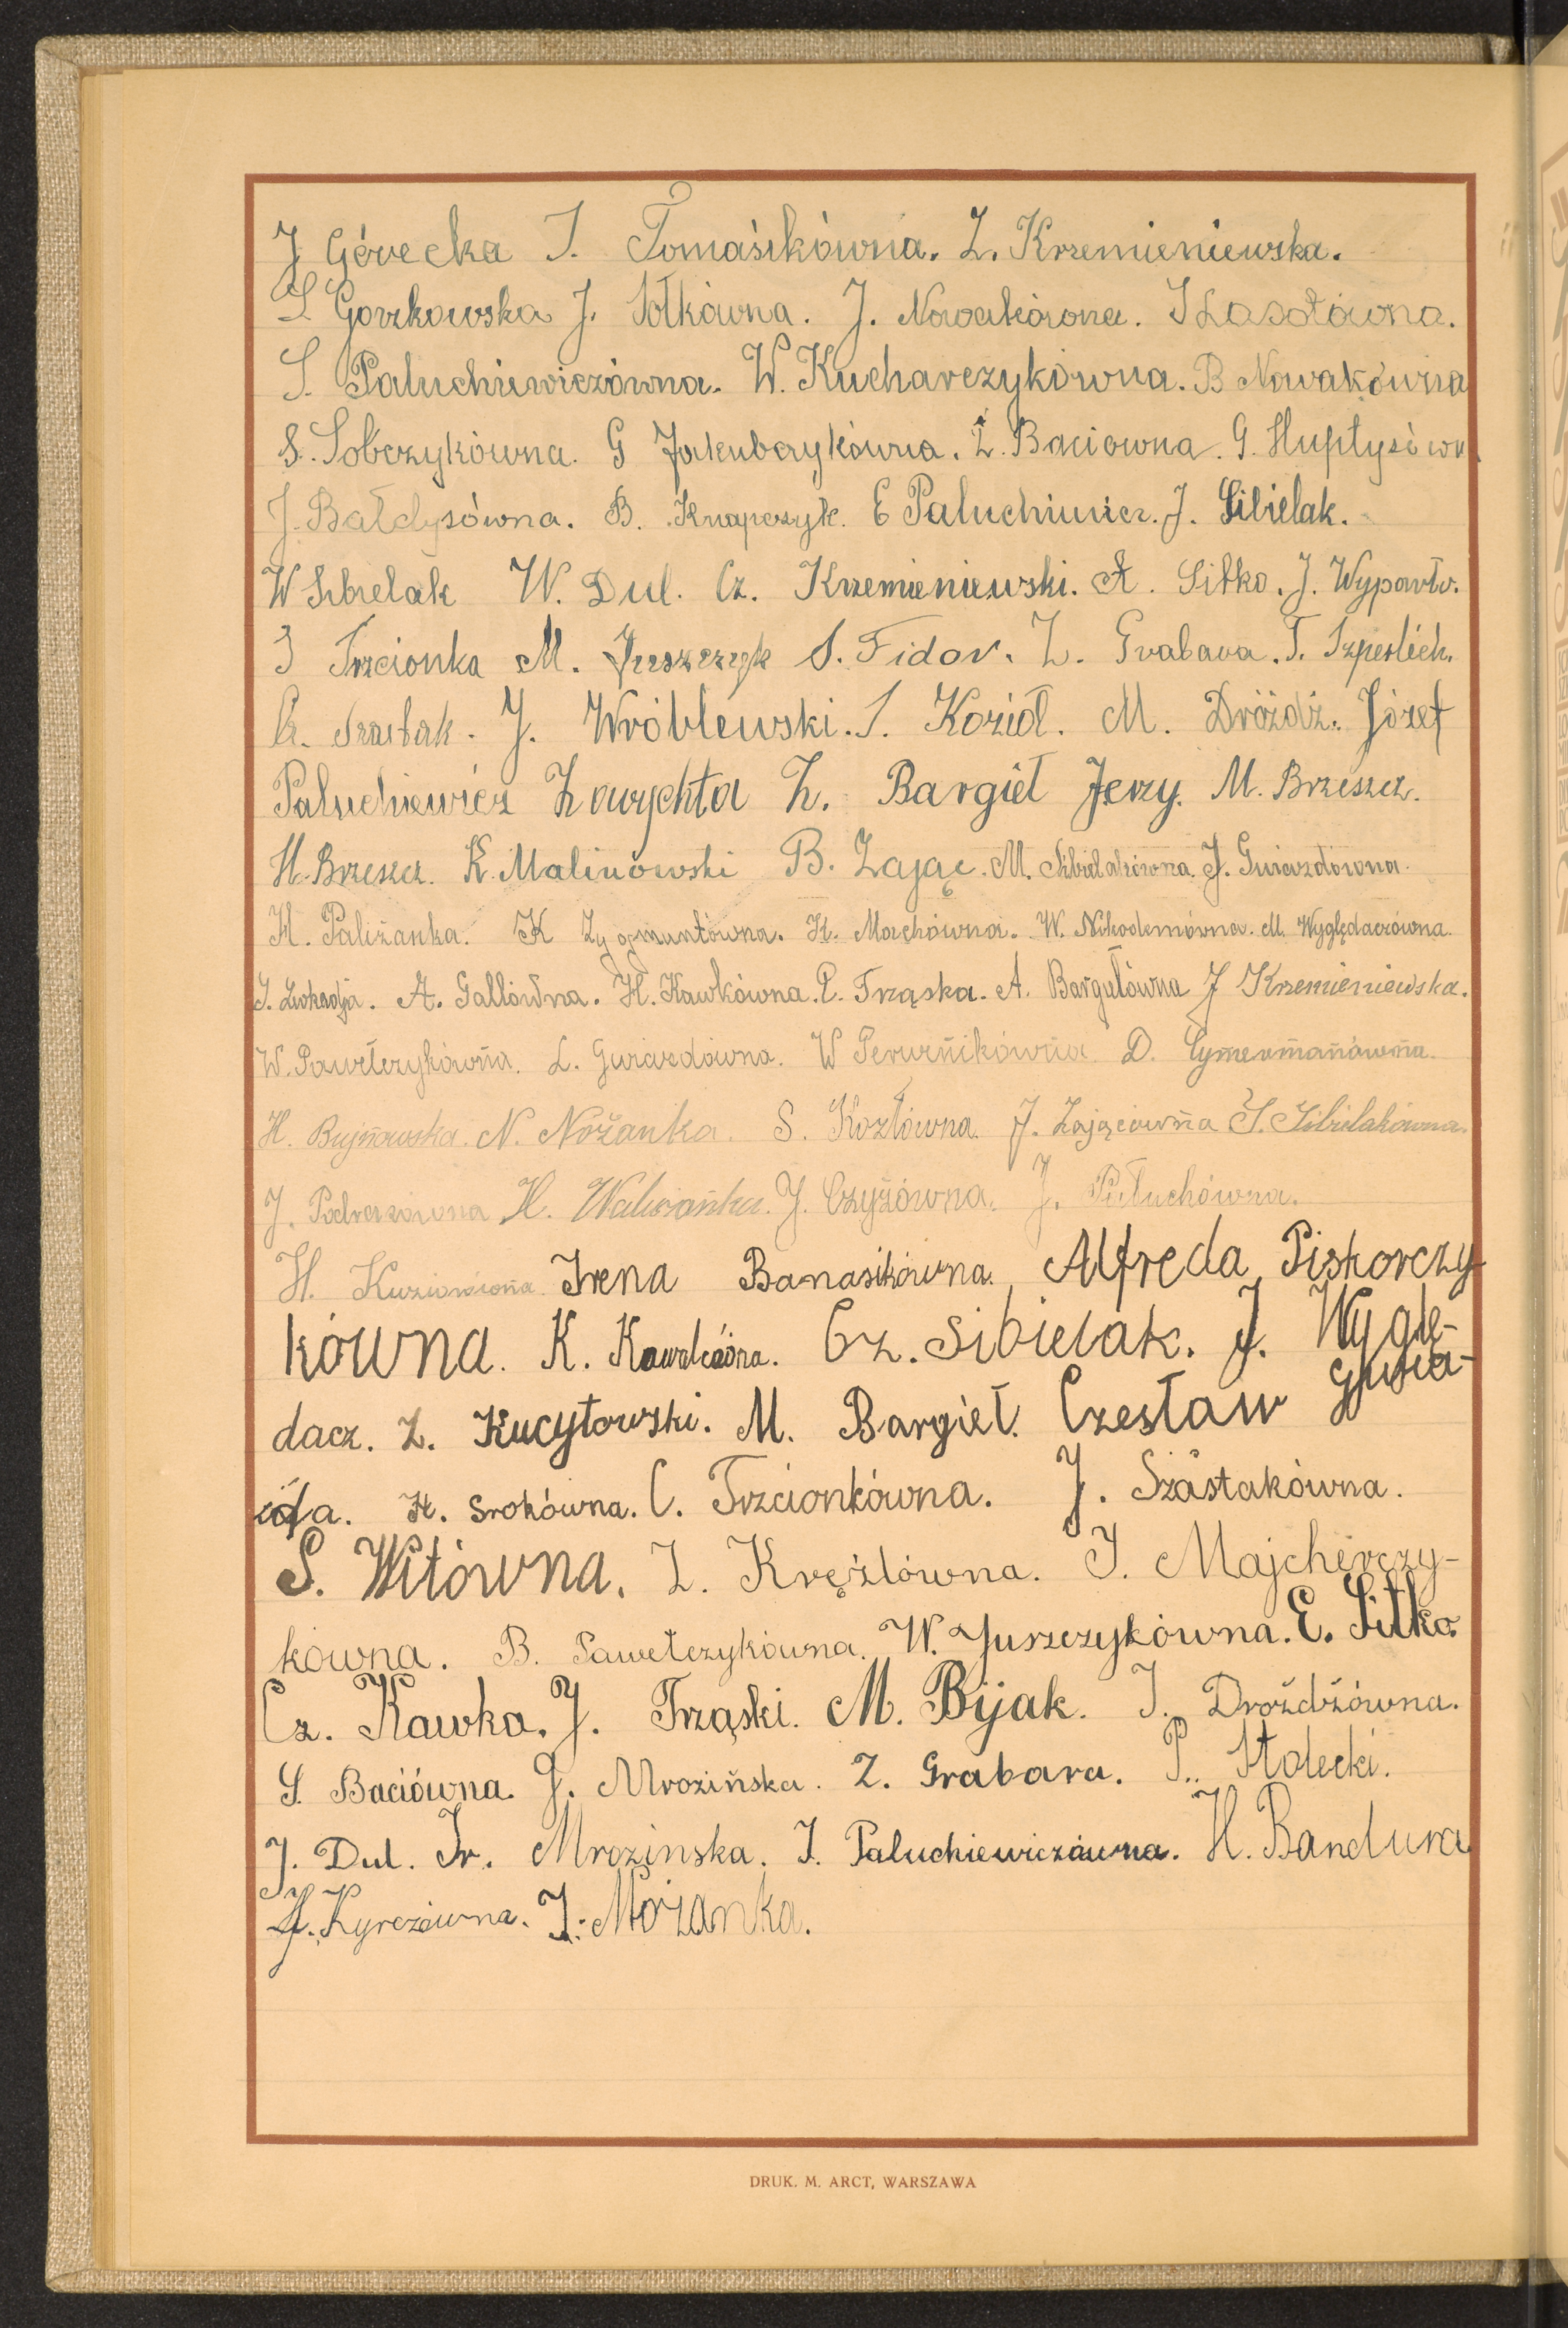 J Górecka S. Tomasikówna. Z. Krzemieniewska.
S Gorzkowska J. Sołkówna. J. Nowakówna. J Lasotówna.
S. Paluchiewiczówna. W. Kucharczykówna. B Nowakówna
S. Sobczykówna. G Jakubczykówna. Z. Baciowna. G. Hupłysówn
J. Bałdysówna. B. Knapczyk. E Paluchiewicz. J. Sibielak.
W Sibielak W. Dul. Cz. Krzemieniewski. A. Sitko. J. Wypartw.
J Trzcionka M. Juszczyk S. Fidor. Z. Grabara. T. Szperlich.
Cz. Szastak. J. Wróblewski. S. Kozioł. M. Dróżdż. Józef
Paluchiewicz Zawychta Z. Bargieł Jerzy. M. Brzeszcz.
H. Brzeszcz. K. Malinowski B. Zając. M. Sibielakówna. J. Gwiazdówna.
H. Paliżanka. K Zygmuntówna. H. Marchówna. W. Nikodemówna. M. Wyględaczówna.
A. Gallówna. H. Kawkówna. P. Trząska. A. Bargułówna J Krzemieniewska.
W. Pawełczykówna. L. Gwiazdówna. W D. Cymermanówna.
H. Bujnowska. N. Nożanka. S. Kozłówna. J. Zającówna S. Sibielakówna.
J. Podrazówna H. J. Czyżówna. J. Pałuchówna.
H. Irena Banasikówna. Alfreda Piskorczy-
kówna. K. Kawalcówna. Cz. Sibielak. J. Wyglę-
dacz. Z. Kucytowski. M. Bargieł. Czesław Gwia-
zda. H. Srokówna. C. Trzcionkówna. J. Szastakówna.
S. Witówna. Z. Krężlówna. J. Majcherczy-
kówna. B. Pawełczykówna. W. Juszczykówna. E. Sitko.
Cz. Kawka. J. Trząski. M. Bijak. J. Drożdżówna.
S. Baciówna. J. Mrozińska. Z. Grabara. P. Stolecki.
J. Dul. Ir. Mrozinska. I. Paluchiewiczówna. H. Bandura
Kyrczówna. J. Możanka.
DRUK. M. ARCT, WARSZAWA